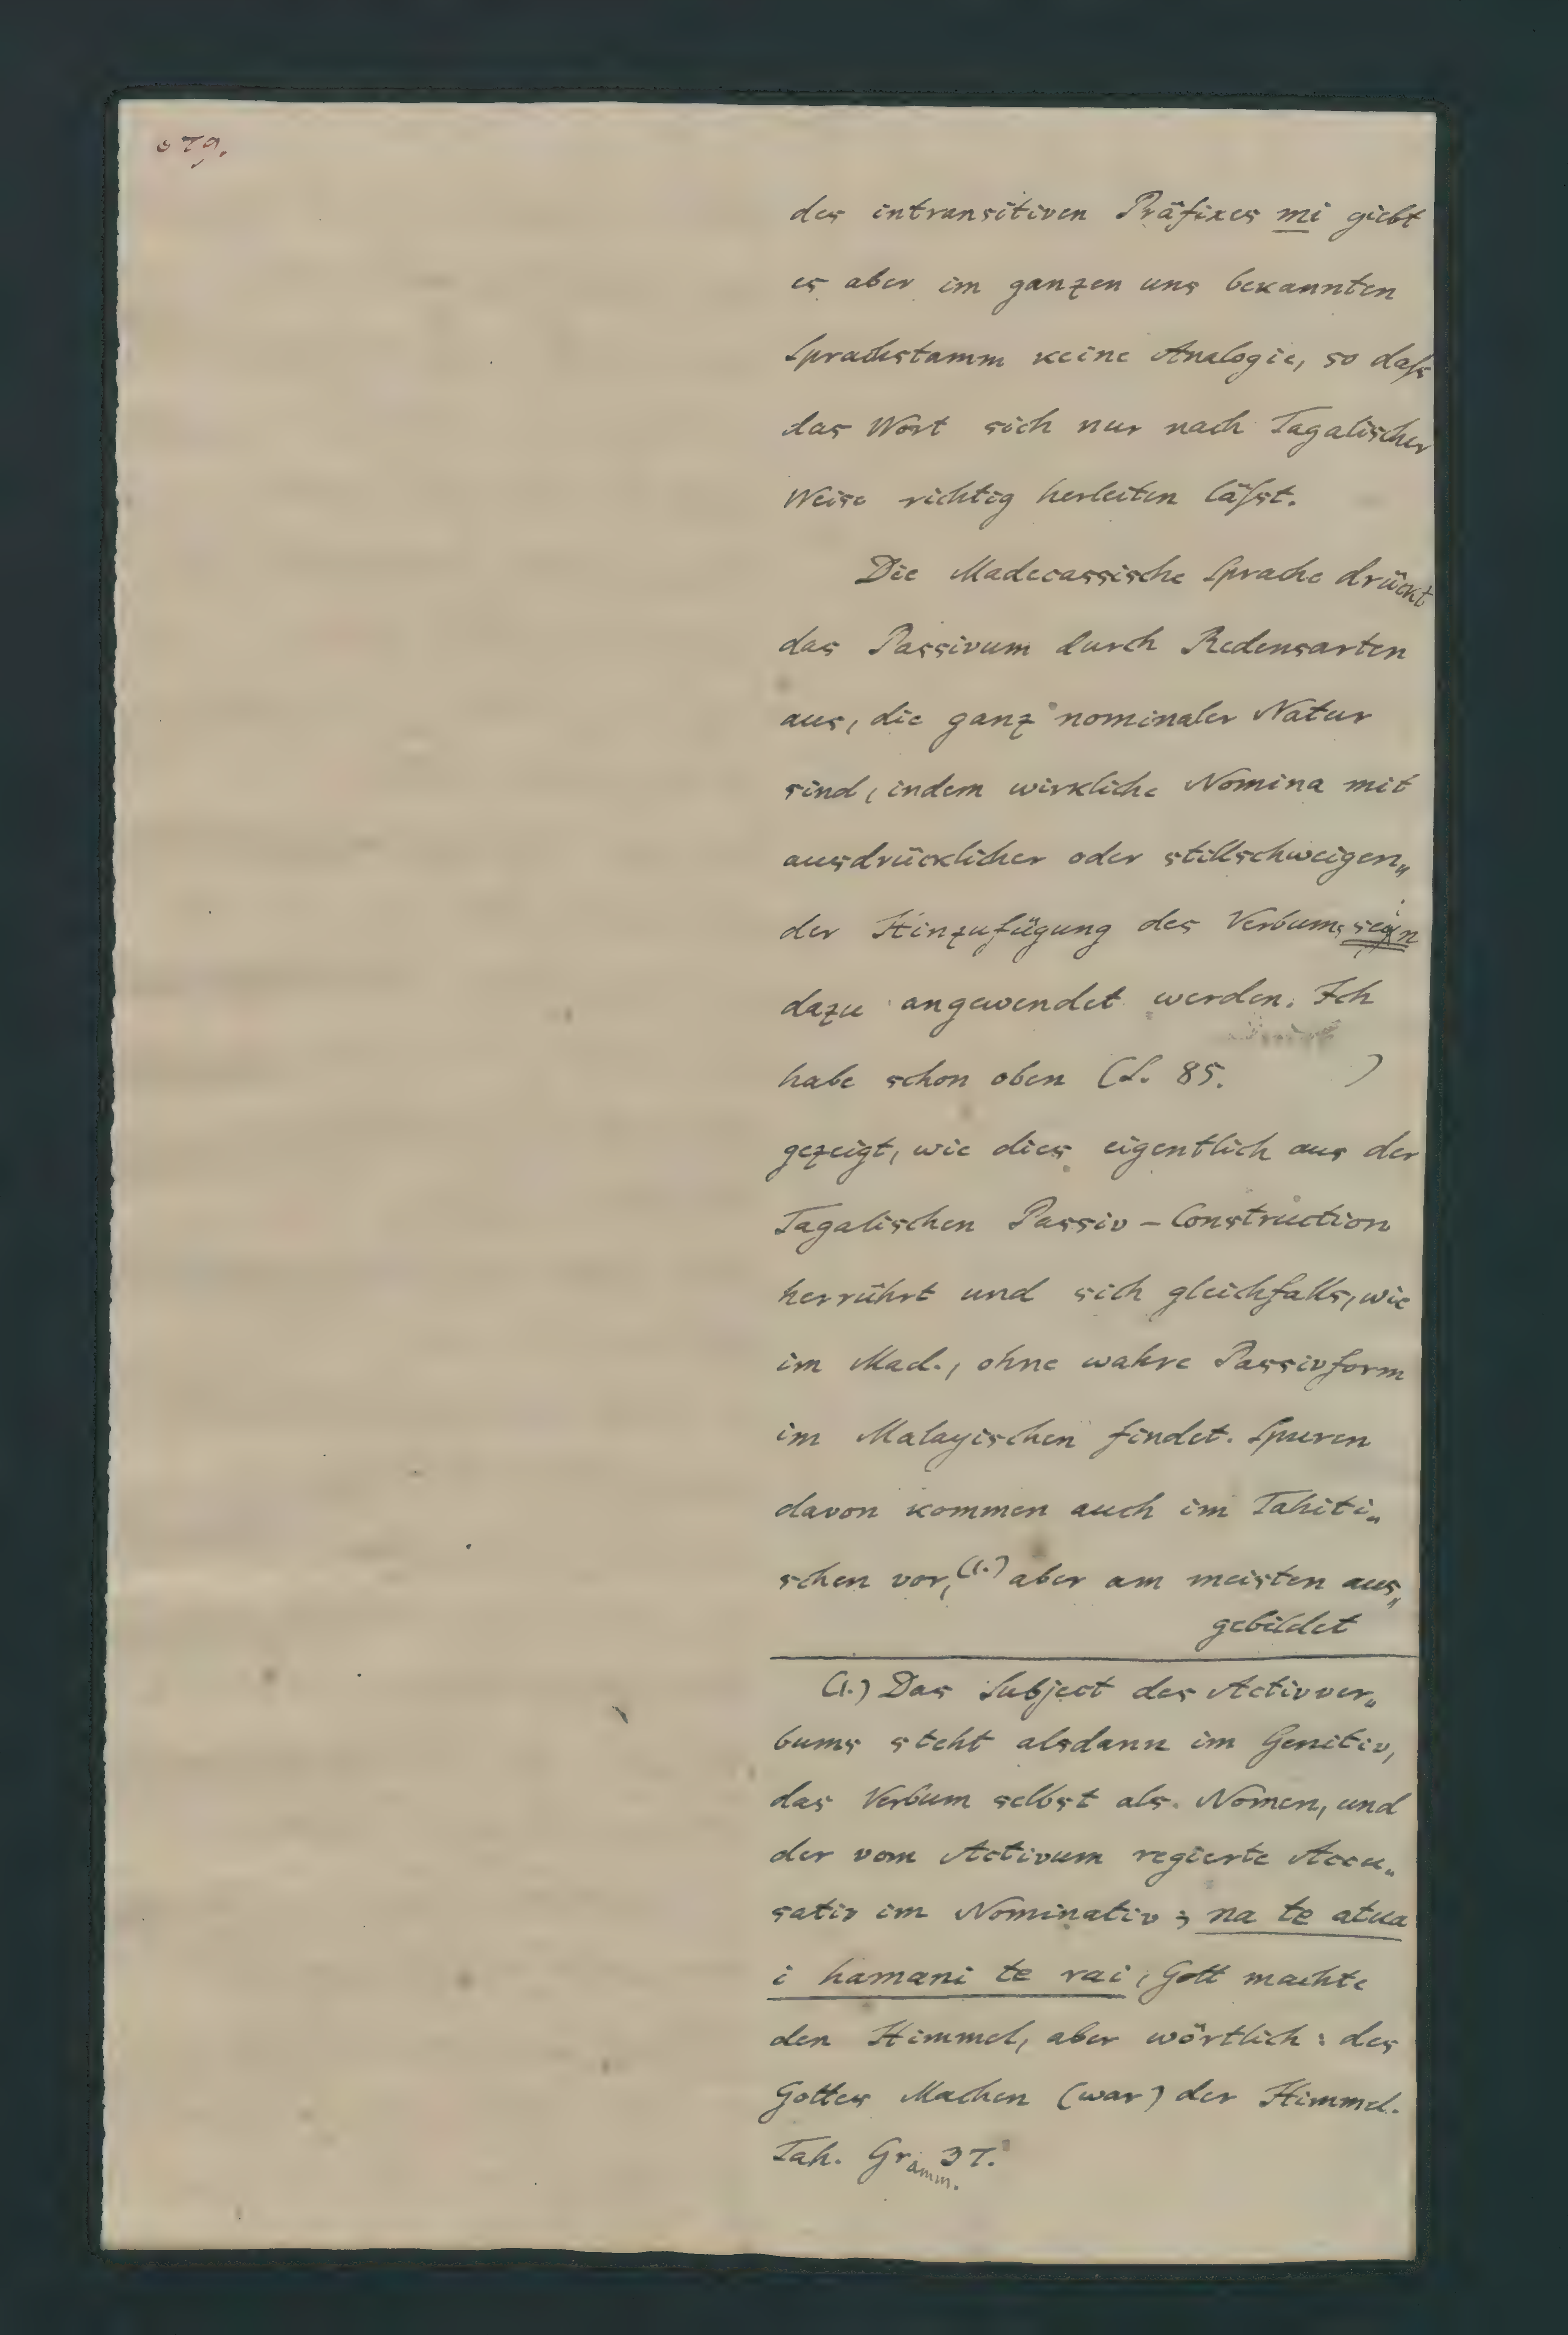 679.
des intransitiven Präfixes mi giebt
es aber im ganzen uns bekannten
Sprachstamm keine Analogie, so daſs
das Wort sich nur nach Tagalischer
Weise richtig herleiten läſst.
Die Madecassische Sprache drückt
das Passivum durch Redensarten
aus, die ganz nominaler Natur
sind, indem wirkliche Nomina mit
ausdrücklicher oder stillschweigen„
der Hinzufügung des Verbums sein
dazu angewendet werden. Ich
habe schon oben (S. 85. )
gezeigt, wie dies eigentlich aus der
Tagalischen Passiv-Construction
herrührt und sich gleichfalls, wie
im Mad., ohne wahre Passivform
im Malayischen findet. Spuren
davon kommen auch im Tahiti„
schen vor, (1.) aber am meisten aus„
gebildet
(1.) Das Subject des Activver„
bums steht alsdann im Genitiv,
das Verbum selbst als Nomen, und
der vom Activum regierte Accu„
sativ im Nominativ; na te atua
i hamani te rai, Gott machte
den Himmel, aber wörtlich: des
Gottes Machen (war) der Himmel.
Tah. Gramm. 37.